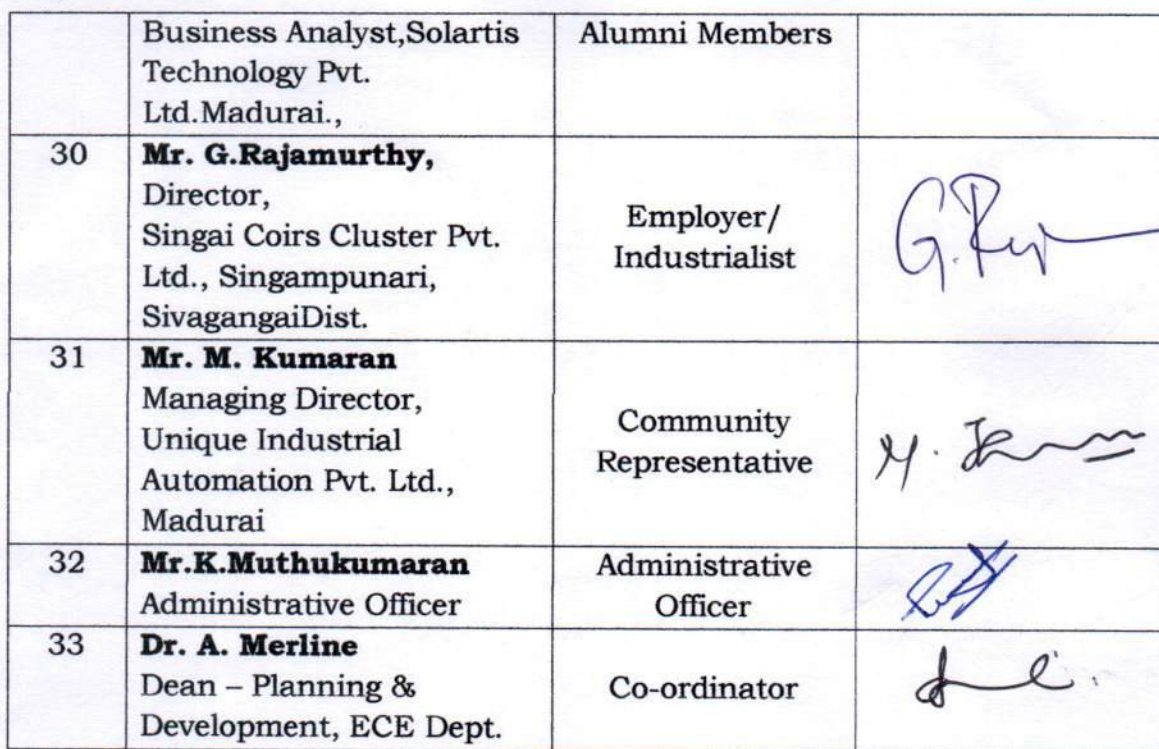 Business Analyst,Solartis
Technology Pvt.
Ltd.Madurai.,
Alumni Members
30
Mr. G.Rajamurthy,
Director,
Singai Coirs Cluster Pvt.
Ltd., Singampunari,
SivagangaiDist.
Employer/
Industrialist
31
Mr. M. Kumaran
Managing Director,
Unique Industrial
Automation Pvt. Ltd.,
Madurai
Community
Representative
32
Mr.K.Muthukumaran
Administrative Officer
Administrative
Officer
33
Dr. A. Merline
Dean – Planning &
Development, ECE Dept.
Co-ordinator